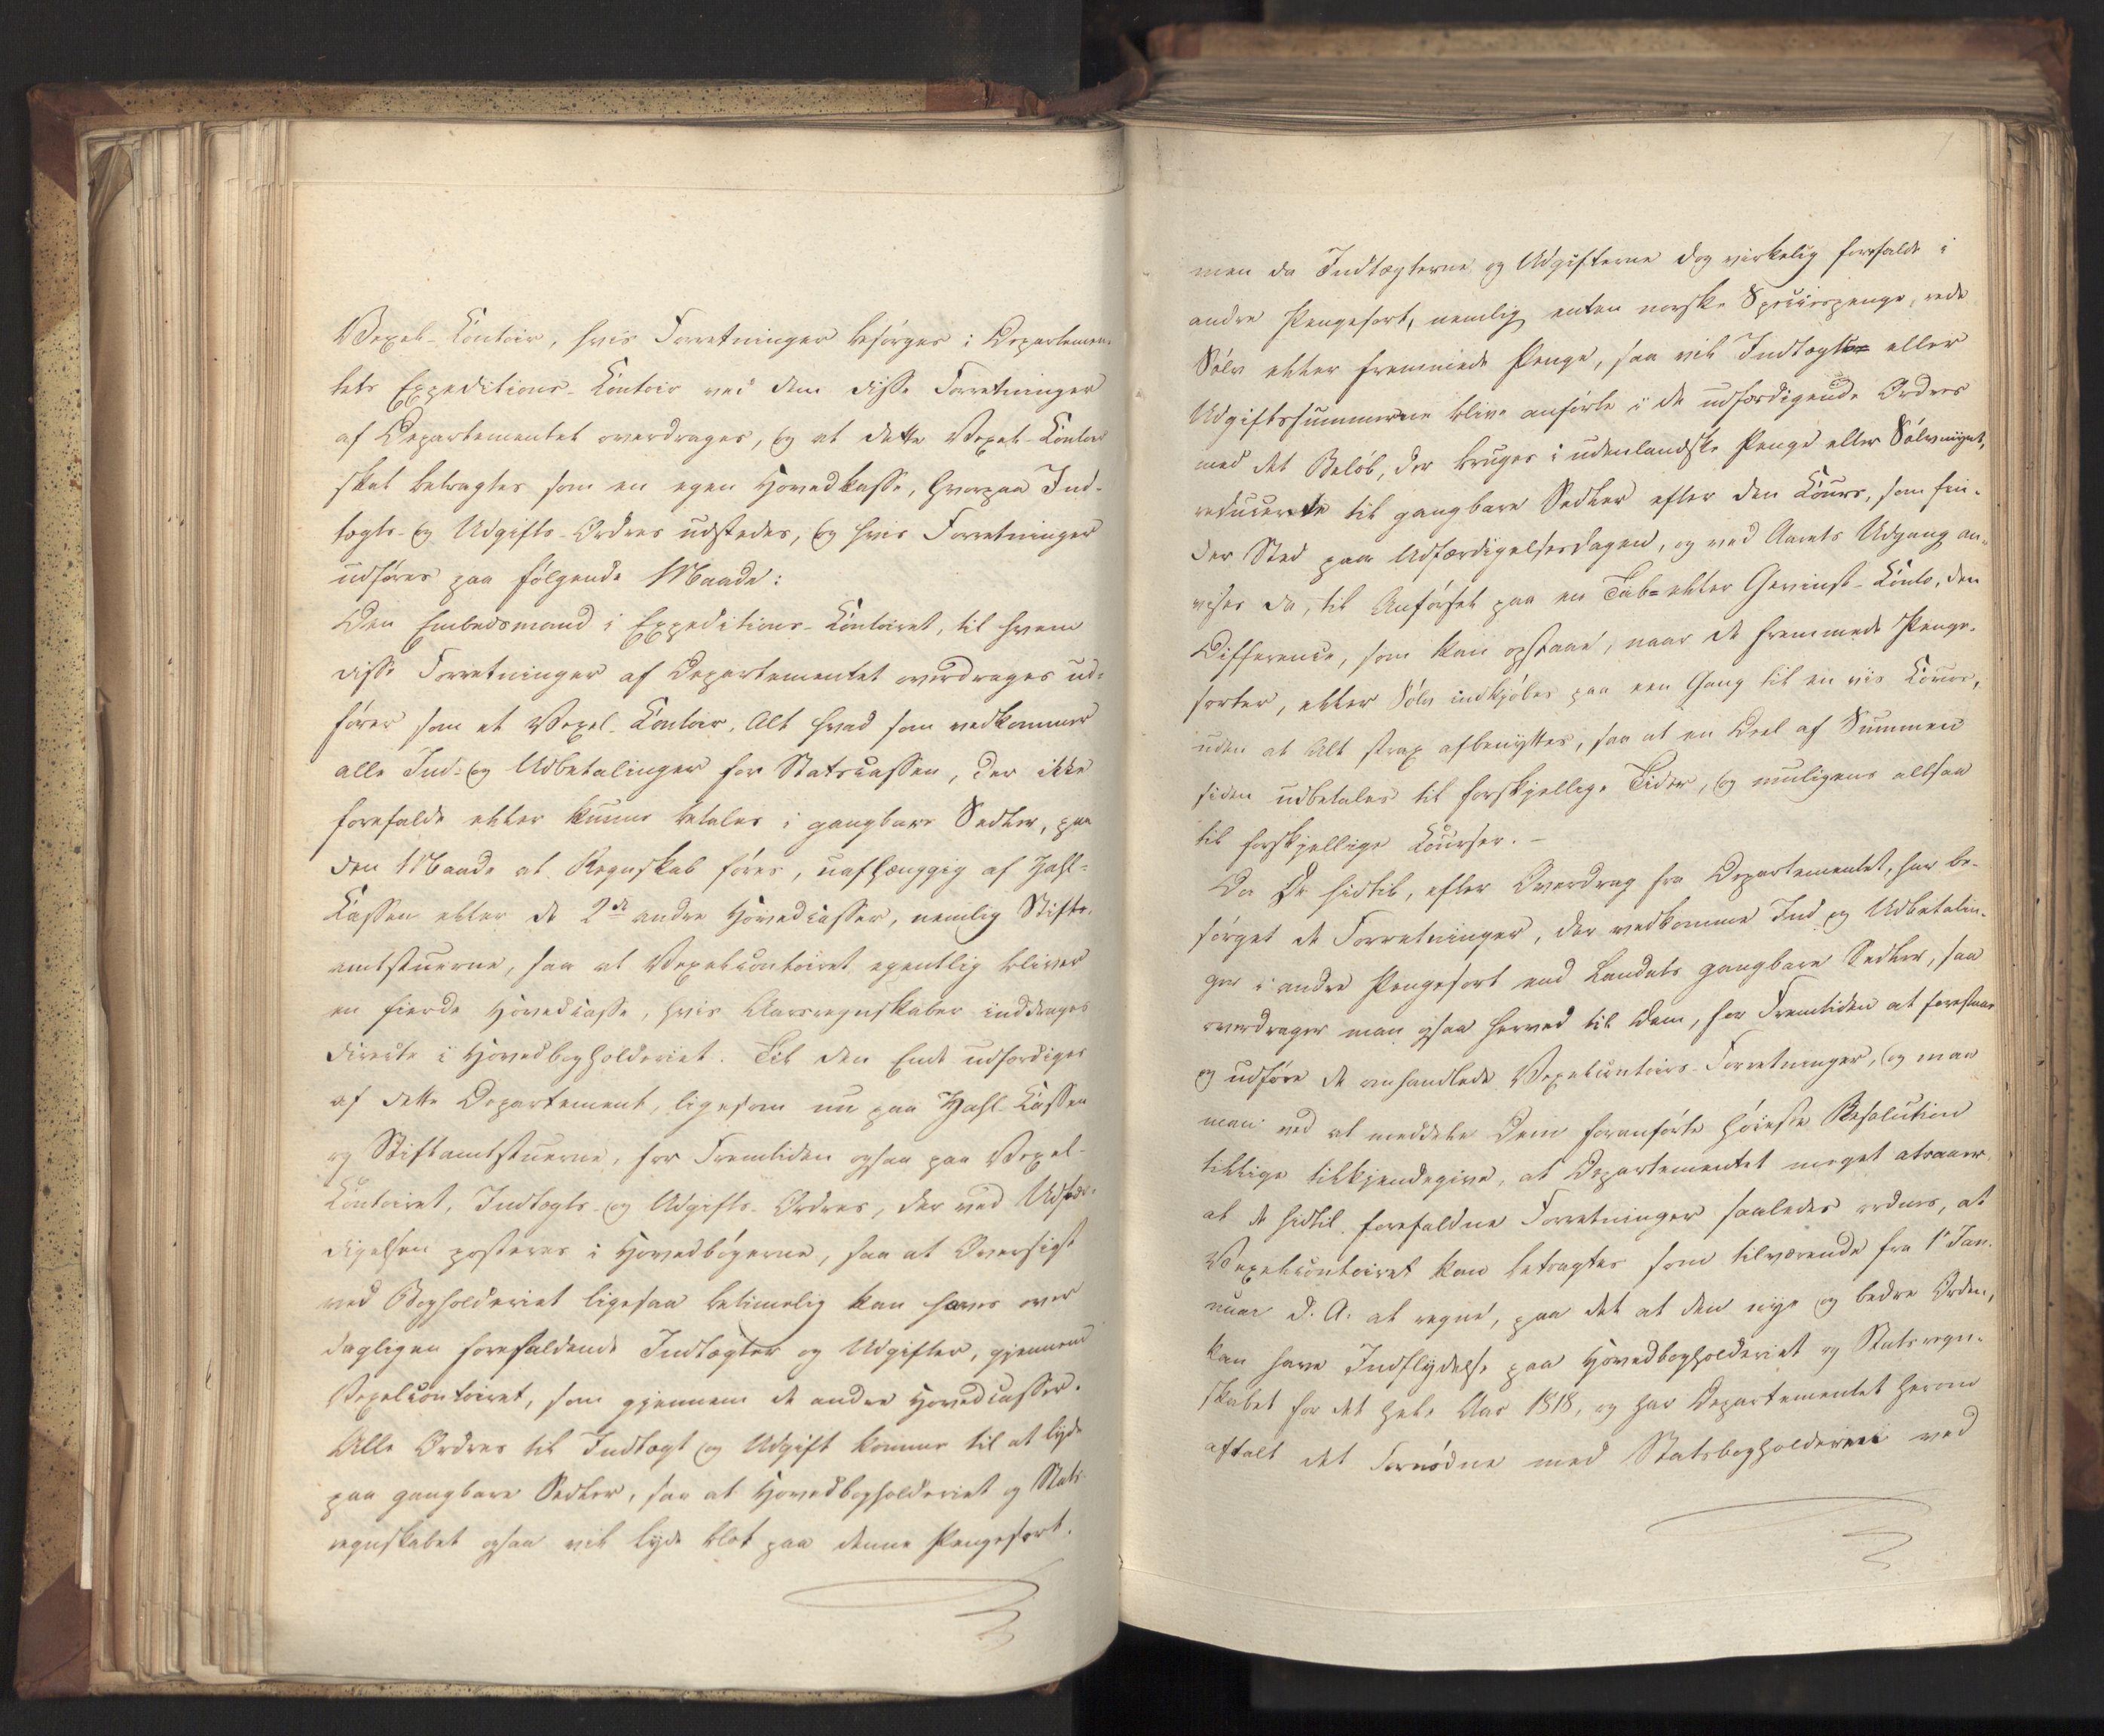 Vexel-Contoir, hvis Forretninger besörges i Departemen-
tets Expeditions-Contoir ved den disse Forretninger
af Departementet overdrages, og at dette Vexel-Contoir
skal betragtes som en egen Hovedkasse, hvorpaa Ind-
tægts- og Udgifts-Ordres udstedes, og hvis Forretninger
udföres paa fölgende Maade:
Den Embedsmand i Expeditions-Contoiret, til hvem
disse Forretninger af Departementet overdrages ud-
förer som et Vexel-Contoir, Alt hvad som vedkommer
alle Ind- og Udbetalinger for Statscassen, der ikke
forefalde eller kunne betales i gangbare Sedler, paa
den Maade at Regnskab föres, uafhænggig af Zahl-
Cassen eller de 2de andre Hovedcasser, nemlig Stifts-
amtstuerne, saa at Vexelcontoiret egentlig bliver
en fierde Hovedcasse, hvis Aarsregnskaber inddrages
directe i Hovedbogholderiet. Til den Ende udfærdiges
af dette Departement, ligesom nu paa Zahl-Cassen
og Stiftamtstuerne, for Fremtiden ogsaa paa Vexel-
Contoiret, Indtægts- og Udgifts-Ordres, der ved Udfær-
digelsen posteres i Hovedbögerne, saa at Oversigt
ved Bogholderiet ligesaa betimelig kan haves over
dagligen forefaldende Indtægter og Udgifter, gjennem
Vexelcontoiret, som gjennem de andre Hovedcasser.
Alle Ordres til Indtægt og Udgift komme til at lyde
paa gangbare Sedler, saa at Hovedbogholderiet og Stats-
regnskabet ogsaa vil lyde blot paa denne Pengesort.
men da Indtægterne og Udgifterne dog virkelig forefalde i
andre Pengesort, nemlig enten norske Speciespenge, rede
Sölv eller fremmede Penge, saa vil Indtægts- eller
Udgiftssummerne blive anförte i de udfærdigende Ordres
med det Belöb, der bruges i udenlandske Penge eller Sölvmynt,
reducerede til gangbare Sedler efter den Cours, som fin-
der Sted paa Udfærdigelsesdagen, og ved Aarets Udgang an-
vises da, til Anförsel paa en Tab- eller Gevinst-Conto, den
Difference, som kan opstaae, naar de fremmede Penge-
sorter, eller Sölv indkjöbes paa een Gang til en vis Cours,
uden at Alt strax afbenyttes, saa at en Deel af Summen
siden udbetales til forskjellige Tider, og muligens altsaa
til forskjellige Courser. –
Da De hidtil, efter Overdrag fra Departementet, har be-
sörget de Forretninger, der vedkomme Ind og Udbetalin-
ger i andre Pengesort end Landets gangbare Sedler, saa
overdrager man ogsaa herved til Dem, for Fremtiden at forestaae
og udföre de omhandlede Vexelcontoirs-Forretninger, og maa
man ved at meddele Dem foranförte höieste Resolution
tillige tilkjendegive, at Departementet meget atraaer,
at de hidtil forefaldne Forretninger saaledes ordnes, at
Vexelcontoiret kan betragtes som tilværende fra 1ste Jan-
uar d. A. at regne, paa det at den nye og bedre Orden,
kan have Indflydelse paa Hovedbogholderiet og Statsregn-
skabet for det hele Aar 1818, og har Departementet herom
aftalt det Fornödne med Statsbogholderiet ved